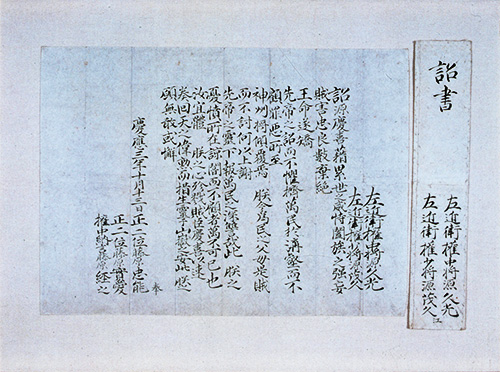 詔書
左近衛權中將源久光
左近衛權少將源茂久 江
左近衛權中將源久光
左近衛權少將源茂久
詔源慶喜藉累世之威恃闔族之强妄
賊害忠良數棄絶
王命遂矯
先帝之詔而不懼擠萬民於溝壑而不
顧罪惡所至
神州將傾覆焉 朕今爲民之父母是賊
而不討何以上謝
先帝之靈下報萬民之深讐哉此 朕之
憂憤所在諒闇而不顧者萬不可已也
汝宜體 朕之心殄戮賊臣慶喜以速
奏回天之偉勳而措生靈于山嶽之安此 朕之
願無敢或懈
慶應三年十月十三日 正二位藤原忠能 奉
正二位藤原實愛
權中納言藤原經之